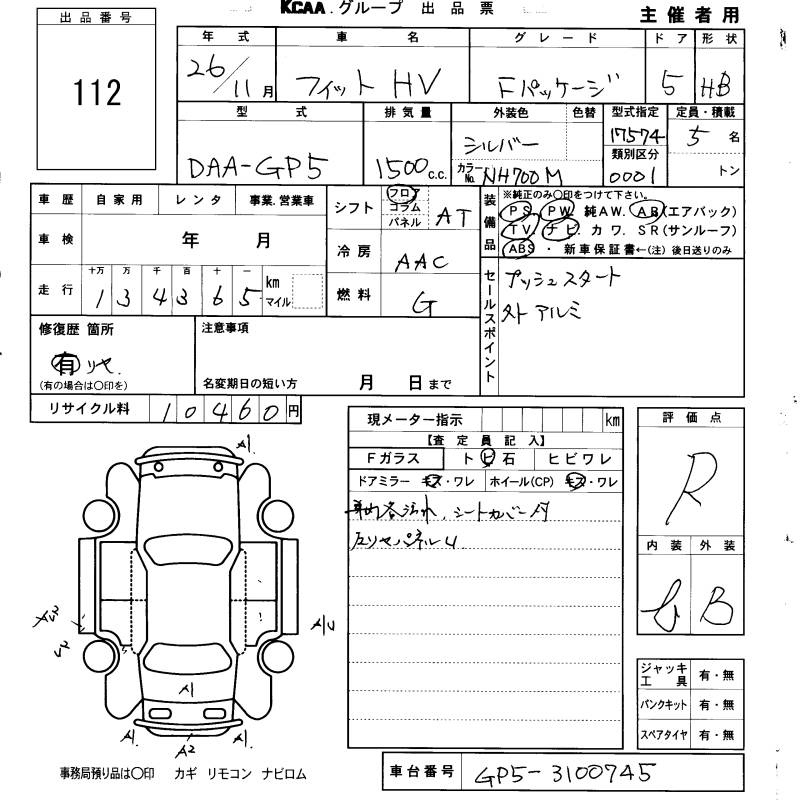 KCAA.グループ 出品票
主催者用
出品番号
112
年式 車名 グレード ドア 形状
26/11月 フィット HV Fパッケージ 5 HB
型式 排気量 外装色 色替 型式指定 定員・積載
DAA-GP5 1500c.c. シルバー 17574 5名
カラーNo. NH700M 類別区分 0001 トン
車歴 自家用 レンタ 事業.営業車
車検 年 月
走行 十万 万 千 百 十 一 km マイル
134365
シフト フロア コラム パネル AT
冷房 AAC
燃料 G
装備品 ※純正のみ〇印をつけて下さい。
PS. PW. 純AW. AB(エアバック)
TV. ナビ. カワ. SR(サンルーフ)
ABS・新車保証書←(注)後日送りのみ
セールスポイント プッシュスタート
外アルミ
修復歴 箇所
有 リヤ.
(有の場合は〇印を)
注意事項
名変期日の短い方 月 日まで
リサイクル料 10460円
現メーター指示 km
【査定員記入】
Fガラス トビ石 ヒビワレ
ドアミラー キズ・ワレ ホイール(CP) キズ・ワレ
シートカバー
左リヤパネルU
評価点
R
内装 外装
B
ジャッキ 工具 有・無
パンクキット 有・無
スペアタイヤ 有・無
A1.
A1.
A1
A1.
A1.
A2
事務局預り品は〇印 カギ リモコン ナビロム
車台番号 GP5-3100745